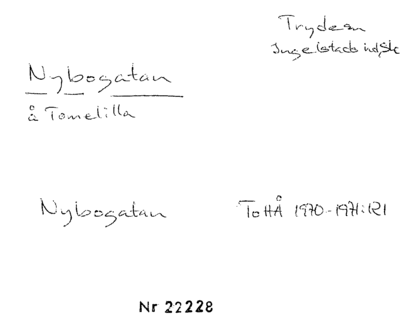 Trydem
Ingelstads hd, Sk
Nybogatan
å Tomelilla
Nybogatan ToHÅ 1970-1971:121
Nr 22228